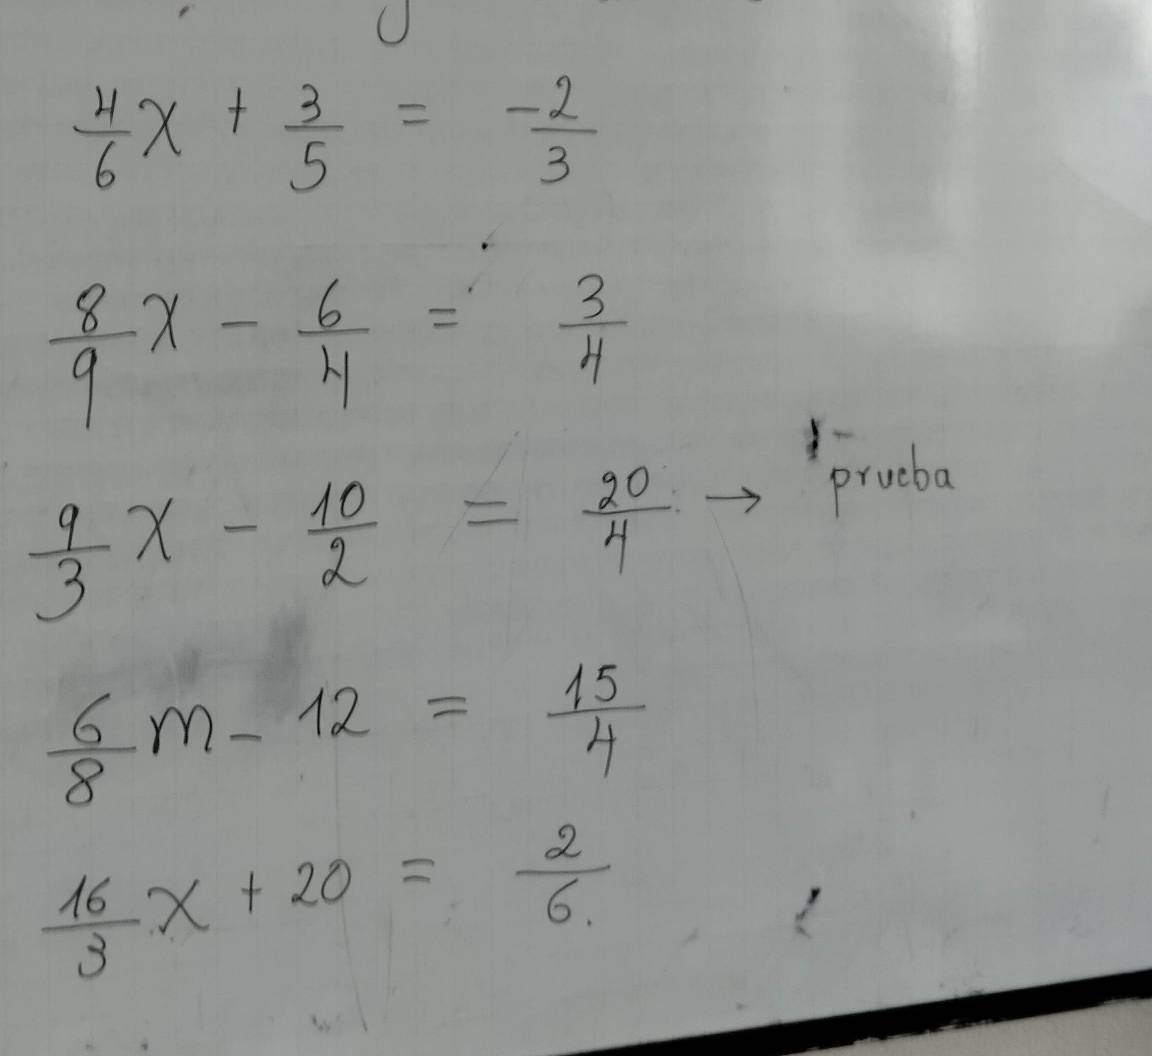 4/6 x + 3/5 = -2/3
8/9 x - 6/4 = 3/4
9/3 x - 10/2 = 20/4 → prueba
6/8 m - 12 = 15/4
16/3 x + 20 = 2/6.